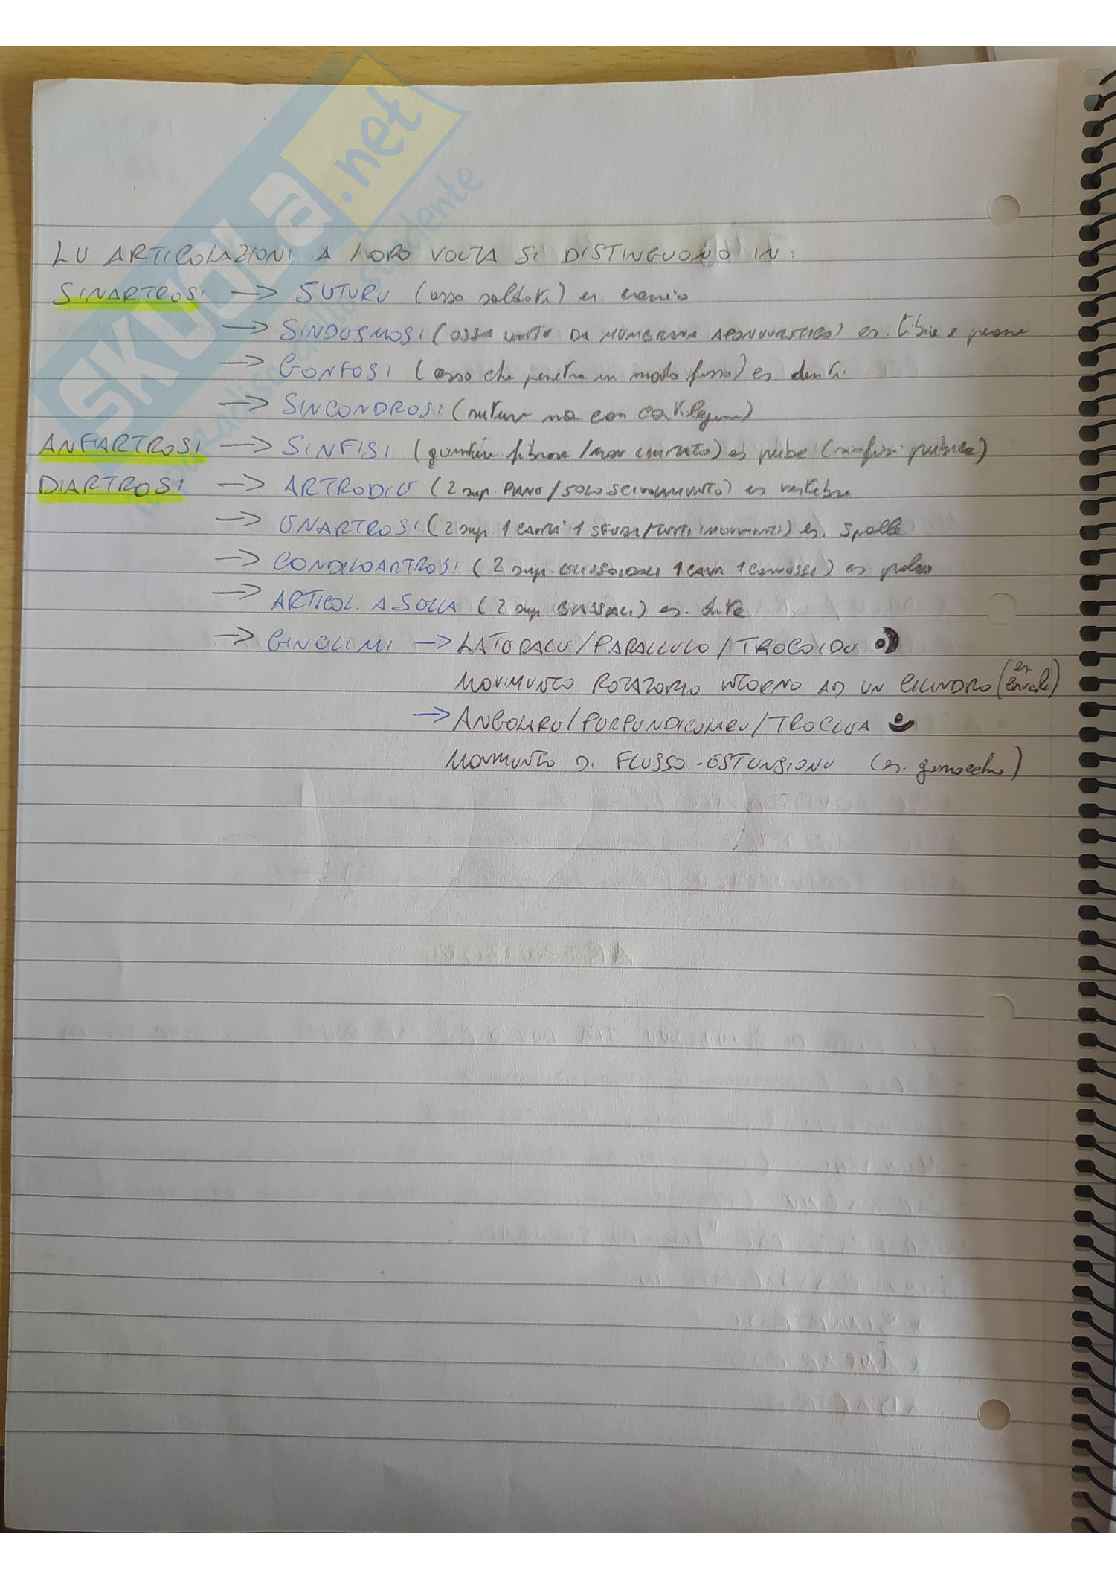 LE ARTICOLAZIONI A LORO VOLTA SI DISTINGUONO IN:
SINARTROSI → SUTURE (osso saldati) es cranio
→ SINDESMOSI (ossa unite DA MEMBRANA APONEVROTICA) es. tibia e perone
→ GONFOSI (osso che penetra in modo fisso) es denti
→ SINCONDROSI (suture ma con cartilagine)
ANFIARTROSI → SINFISI (guantiera fibrosa / mov limitato) es pube (sinfisi pubica)
DIARTROSI → ARTRODIE (2 sup. PIANE / SOLO SCIVOLAMENTO) es vertebre
→ ENARTROSI (2 sup 1 CAVA 1 SFERA / TUTTI I MOVIMENTI) es. spalla
→ CONDILOARTROSI (2 sup. ELLISSOIDALI 1 CAVA 1 CONVESSA) es polso
→ ARTICOL. A SELLA (2 sup BIASSIALI) es.
→ GINGLIMI → LATERALE/PARALLELO/TROCOIDE
MOVIMENTO ROTATORIO INTORNO AD UN CILINDRO (es
→ ANGOLARE/PERPENDICOLARE/TROCLEA
MOVIMENTO DI FLESSO-ESTENSIONE (es. ginocchio)
SKUOLA.net